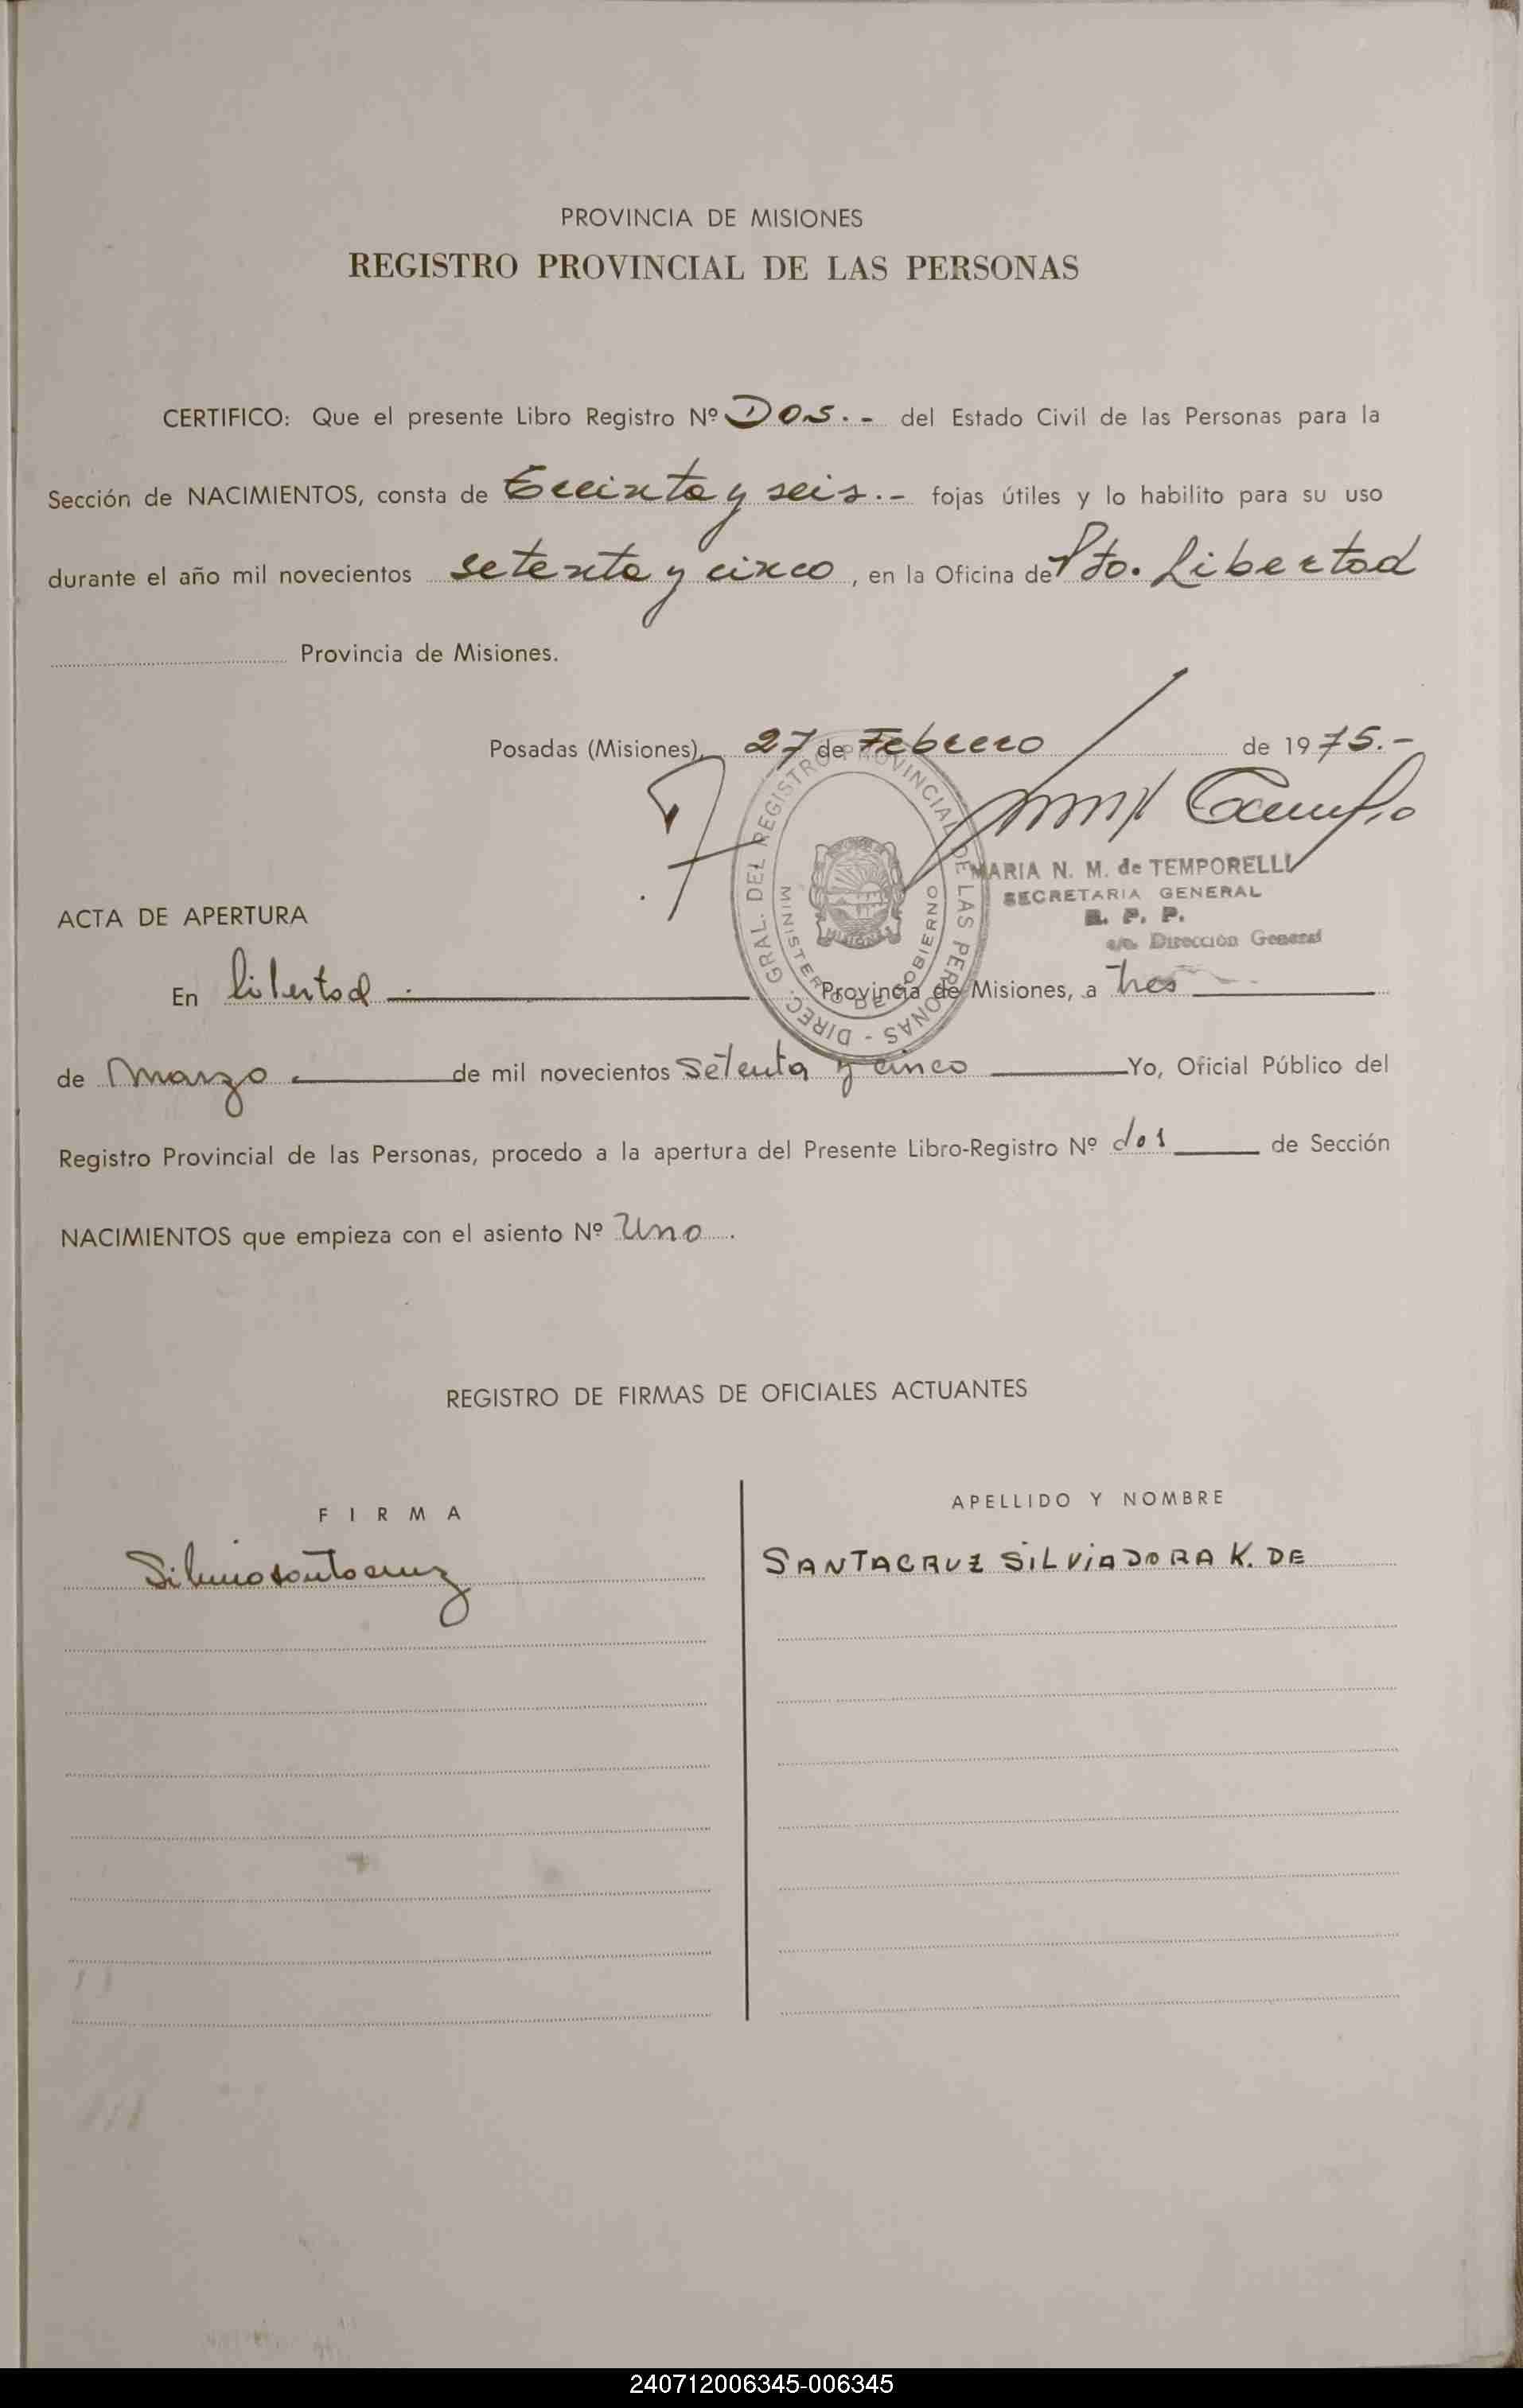 PROVINCIA DE MISIONES
REGISTRO PROVINCIAL DE LAS PERSONAS
CERTIFICO: Que el presente Libro Registro Nº Dos.- del Estado Civil de las Personas para la
Sección de NACIMIENTOS, consta de treinta y seis.- fojas útiles y lo habilito para su uso
durante el año mil novecientos setenta y cinco, en la Oficina de Pto. Libertad
Provincia de Misiones.
Posadas (Misiones), 27 de Febrero de 1975.-
DIREC. GRAL. DEL REGISTRO PROVINCIAL DE LAS PERSONAS -
MINISTERIO DE GOBIERNO
MARIA N. M. de TEMPORELLI
SECRETARIA GENERAL
R. P. P.
a/c. Dirección General
ACTA DE APERTURA
En Libertad.- Provincia de Misiones, a tres
de Marzo.- de mil novecientos setenta y cinco Yo, Oficial Público del
Registro Provincial de las Personas, procedo a la apertura del Presente Libro-Registro Nº dos de Sección
NACIMIENTOS que empieza con el asiento Nº Uno.
REGISTRO DE FIRMAS DE OFICIALES ACTUANTES
FIRMA APELLIDO Y NOMBRE
SANTACRUZ SILVIA DORA K. DE
240712006345-006345